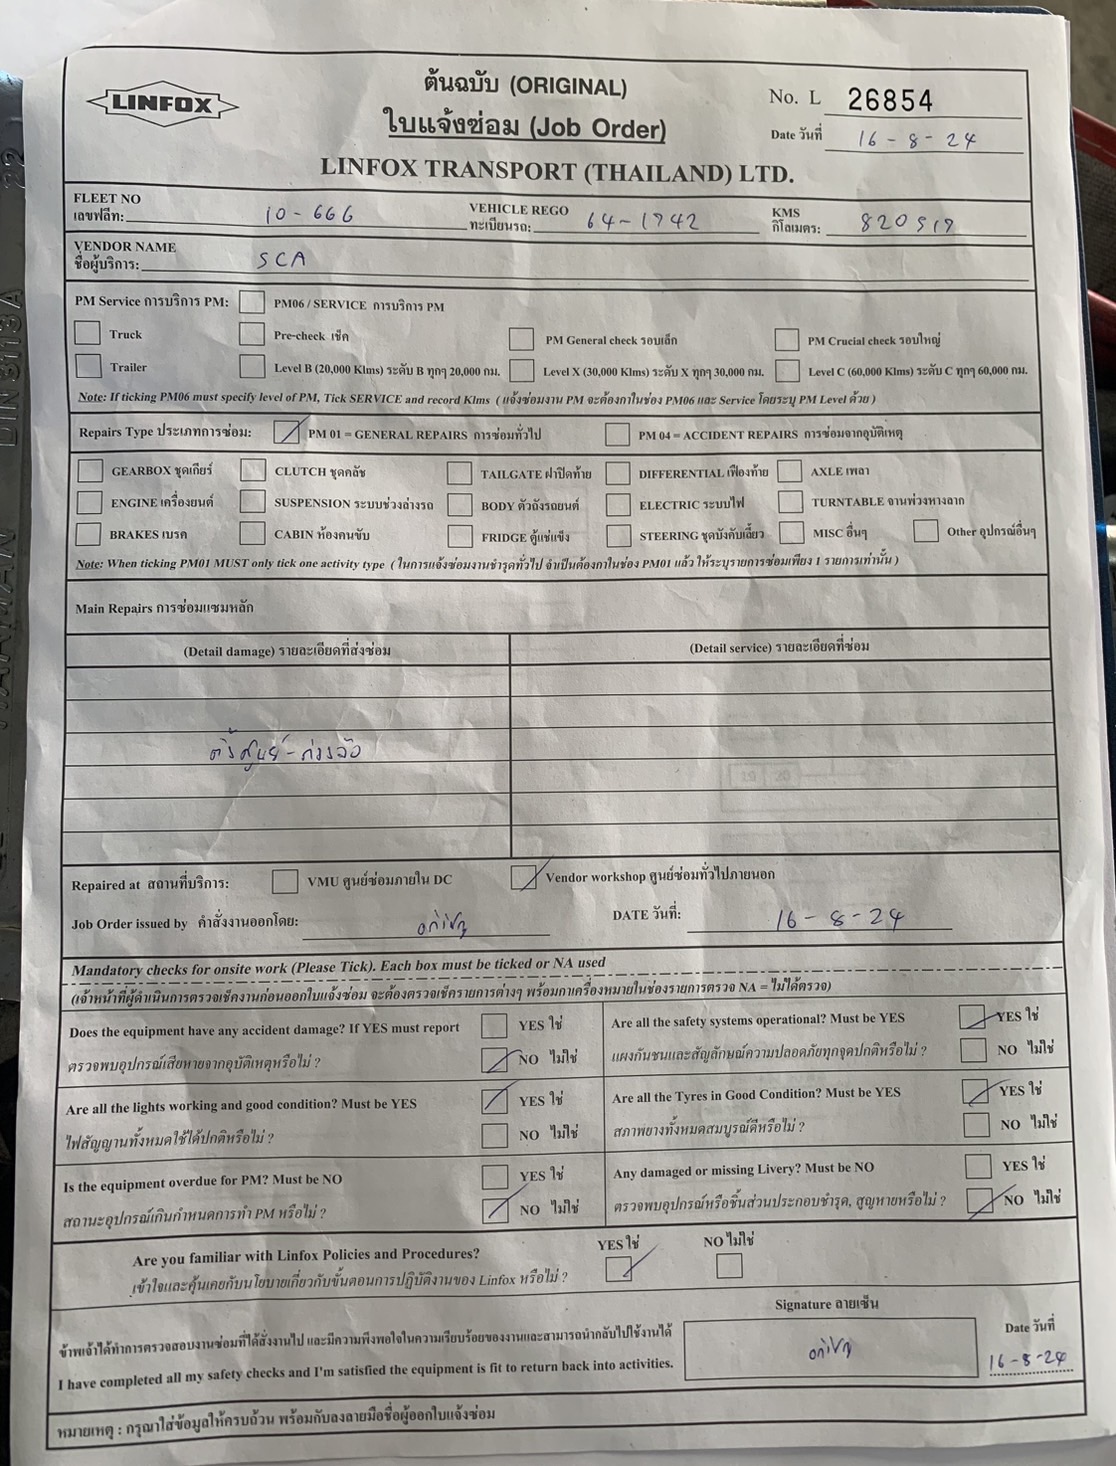 LINFOX
ต้นฉบับ (ORIGINAL)
ใบแจ้งซ่อม (Job Order)
No. L 26854
Date วันที่ 16-8-24
LINFOX TRANSPORT (THAILAND) LTD.
FLEET NO
เลขฟลีท: 10-666
VEHICLE REGO
ทะเบียนรถ: 64-1942
KMS
กิโลเมตร: 820519
VENDOR NAME
ชื่อผู้บริการ: SCA
PM Service การบริการ PM: PM06 / SERVICE การบริการ PM
Truck Pre-check เช็ค PM General check รอบเล็ก PM Crucial check รอบใหญ่
Trailer Level B (20,000 Klms) ระดับ B ทุกๆ 20,000 กม. Level X (30,000 Klms) ระดับ X ทุกๆ 30,000 กม. Level C (60,000 Klms) ระดับ C ทุกๆ 60,000 กม.
Note: If ticking PM06 must specify level of PM, Tick SERVICE and record Klms ( แจ้งซ่อมงาน PM จะต้องกาในช่อง PM06 และ Service โดยระบุ PM Level ด้วย )
Repairs Type ประเภทการซ่อม: PM 01 = GENERAL REPAIRS การซ่อมทั่วไป PM 04 = ACCIDENT REPAIRS การซ่อมจากอุบัติเหตุ
GEARBOX ชุดเกียร์ CLUTCH ชุดคลัช TAILGATE ฝาปิดท้าย DIFFERENTIAL เฟืองท้าย AXLE เพลา
ENGINE เครื่องยนต์ SUSPENSION ระบบช่วงล่างรถ BODY ตัวถังรถยนต์ ELECTRIC ระบบไฟ TURNTABLE จานพ่วงหางลาก
BRAKES เบรค CABIN ห้องคนขับ FRIDGE ตู้แช่แข็ง STEERING ชุดบังคับเลี้ยว MISC อื่นๆ Other อุปกรณ์อื่นๆ
Note: When ticking PM01 MUST only tick one activity type ( ในการแจ้งซ่อมงานชำรุดทั่วไป จำเป็นต้องกาในช่อง PM01 แล้ว ให้ระบุรายการซ่อมเพียง 1 รายการเท่านั้น )
Main Repairs การซ่อมแซมหลัก
(Detail damage) รายละเอียดที่ส่งซ่อม (Detail service) รายละเอียดที่ซ่อม
ตั้งศูนย์-ถ่วงล้อ
Repaired at สถานที่บริการ: VMU ศูนย์ซ่อมภายใน DC Vendor workshop ศูนย์ซ่อมทั่วไปภายนอก
Job Order issued by คำสั่งงานออกโดย: DATE วันที่: 16-8-24
Mandatory checks for onsite work (Please Tick). Each box must be ticked or NA used
(เจ้าหน้าที่ผู้ดำเนินการตรวจเช็คงานก่อนออกใบแจ้งซ่อม จะต้องตรวจเช็ครายการต่างๆ พร้อมกาเครื่องหมายในช่องรายการตรวจ NA = ไม่ได้ตรวจ)
Does the equipment have any accident damage? If YES must report YES ใช่
ตรวจพบอุปกรณ์เสียหายจากอุบัติเหตุหรือไม่ ? NO ไม่ใช่
Are all the safety systems operational? Must be YES YES ใช่
แผงกันชนและสัญลักษณ์ความปลอดภัยทุกจุดปกติหรือไม่ ? NO ไม่ใช่
Are all the lights working and good condition? Must be YES YES ใช่
ไฟสัญญานทั้งหมดใช้ได้ปกติหรือไม่ ? NO ไม่ใช่
Are all the Tyres in Good Condition? Must be YES YES ใช่
สภาพยางทั้งหมดสมบูรณ์ดีหรือไม่ ? NO ไม่ใช่
Is the equipment overdue for PM? Must be NO YES ใช่
สถานะอุปกรณ์เกินกำหนดการทำ PM หรือไม่ ? NO ไม่ใช่
Any damaged or missing Livery? Must be NO YES ใช่
ตรวจพบอุปกรณ์หรือชิ้นส่วนประกอบชำรุด, สูญหายหรือไม่ ? NO ไม่ใช่
Are you familiar with Linfox Policies and Procedures? YES ใช่ NO ไม่ใช่
เข้าใจและคุ้นเคยกับนโยบายเกี่ยวกับขั้นตอนการปฏิบัติงานของ Linfox หรือไม่ ?
Signature ลายเซ็น
Date วันที่
16-8-24
ข้าพเจ้าได้ทำการตรวจสอบงานซ่อมที่ได้สั่งงานไป และมีความพึงพอใจในความเรียบร้อยของงานและสามารถนำกลับไปใช้งานได้
I have completed all my safety checks and I'm satisfied the equipment is fit to return back into activities.
หมายเหตุ : กรุณาใส่ข้อมูลให้ครบถ้วน พร้อมกับลงลายมือชื่อผู้ออกใบแจ้งซ่อม